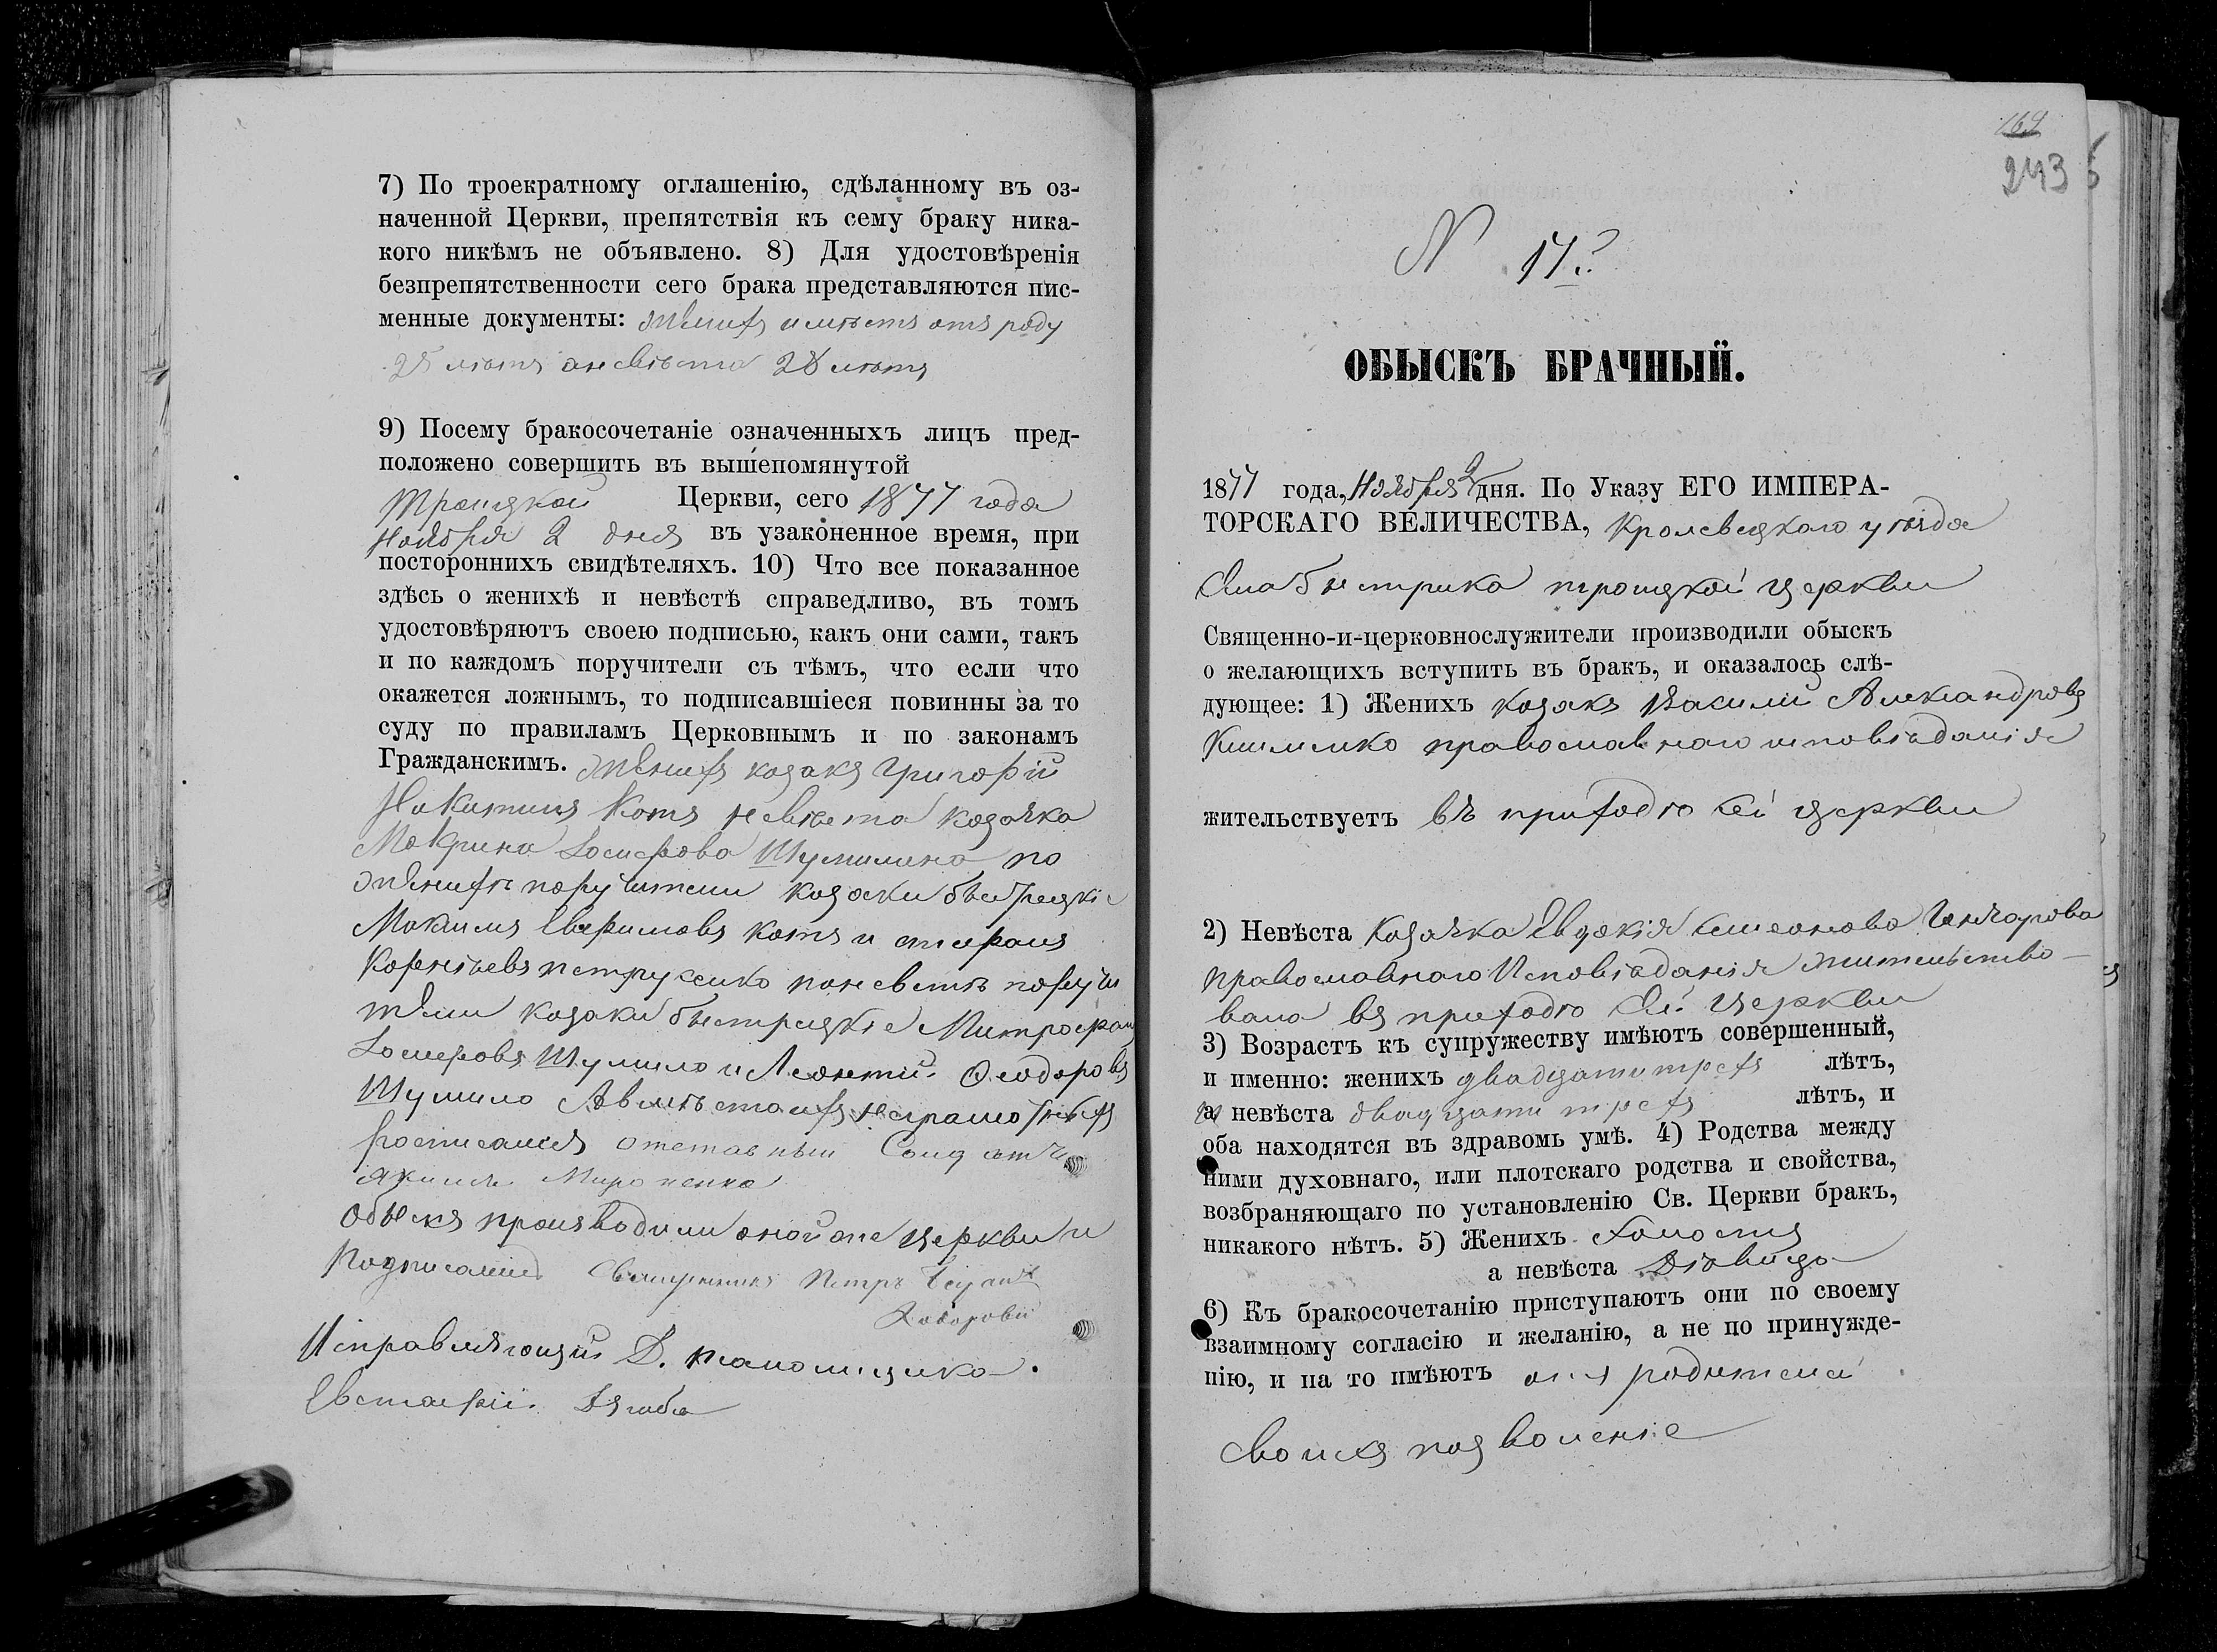 7) По троекратному оглашенію, сдѣланному въ оз-
наченной Церкви, препятствія къ сему браку ника-
кого никѣмъ не объявлено. 8) Для удостовѣренія
безпрепятственности сего брака представляются пис-
менные документы: женихъ имѣетъ отъ роду
28 лѣтъ а невѣста 28 лѣтъ
9) Посему бракосочетаніе означенныхъ лицъ пред-
положено совершить въ вышепомянутой
Троицкой Церкви, сего 1877 года
Ноября 2 дня въ узаконенное время, при
постороннихъ свидѣтеляхъ. 10) Что все показанное
здѣсь о женихѣ и невѣстѣ справедливо, въ томъ
удостовѣряютъ своею подписью, какъ они сами, такъ
и по каждомъ поручители съ тѣмъ, что если что
окажется ложнымъ, то подписавшіеся повинны за то
суду по правиламъ Церковнымъ и по законамъ
Гражданскимъ. Женихъ козакъ Григорій
Никитинъ Котъ невѣста козачка
Макрина Іосифова Шумилина по
женихѣ поручители козаки быстрицкіе
Максимъ Евфимовъ Котъ и Стефанъ
Корнѣевъ Петрусенко по невѣстѣ поручи
тели козаки быстрицкіе Митрофанъ
Іосифовъ Шумило и Леонтій Ѳеодоровъ
Шумило А вмѣсто ихъ неграмотныхъ
росписался отставный Солдатъ
Якимъ Мироненко
Обыскъ производили оной же церкви и
подписались Священникъ Петръ
Исправляющій Д. псаломщика
Евстафій
169
243
N 17
ОБЫСКЪ БРАЧНЫЙ.
1877 года, Ноября 2 дня. По Указу ЕГО ИМПЕРА-
ТОРСКАГО ВЕЛИЧЕСТВА, Кролевецкаго уѣзда
Села Быстрика Троицкой церкви
Священно-и-церковнослужители производили обыскъ
о желающихъ вступить въ бракъ, и оказалось слѣ-
дующее: 1) Женихъ козакъ Василій Александровъ
православнаго исповѣданія
жительствуетъ въ приходѣ сей церкви
2) Невѣста Козачка Евдокія Симеонова Гончарова
православнаго Исповѣданія жительство-
вала въ приходѣ сей Церкви
3) Возрастъ къ супружеству имѣютъ совершенный,
и именно: женихъ двадцати трехъ лѣтъ,
а невѣста двадцати трехъ лѣтъ, и
оба находятся въ здравомъ умѣ. 4) Родства между
ними духовнаго, или плотскаго родства и свойства,
возбраняющаго по установленію Св. Церкви бракъ,
никакого нѣтъ. 5) Женихъ холостъ
а невѣста Дѣвица
6) Къ бракосочетанію приступаютъ они по своему
взаимному согласію и желанію, а не по принужде-
нію, и на то имѣютъ отъ родителей
своихъ позволеніе